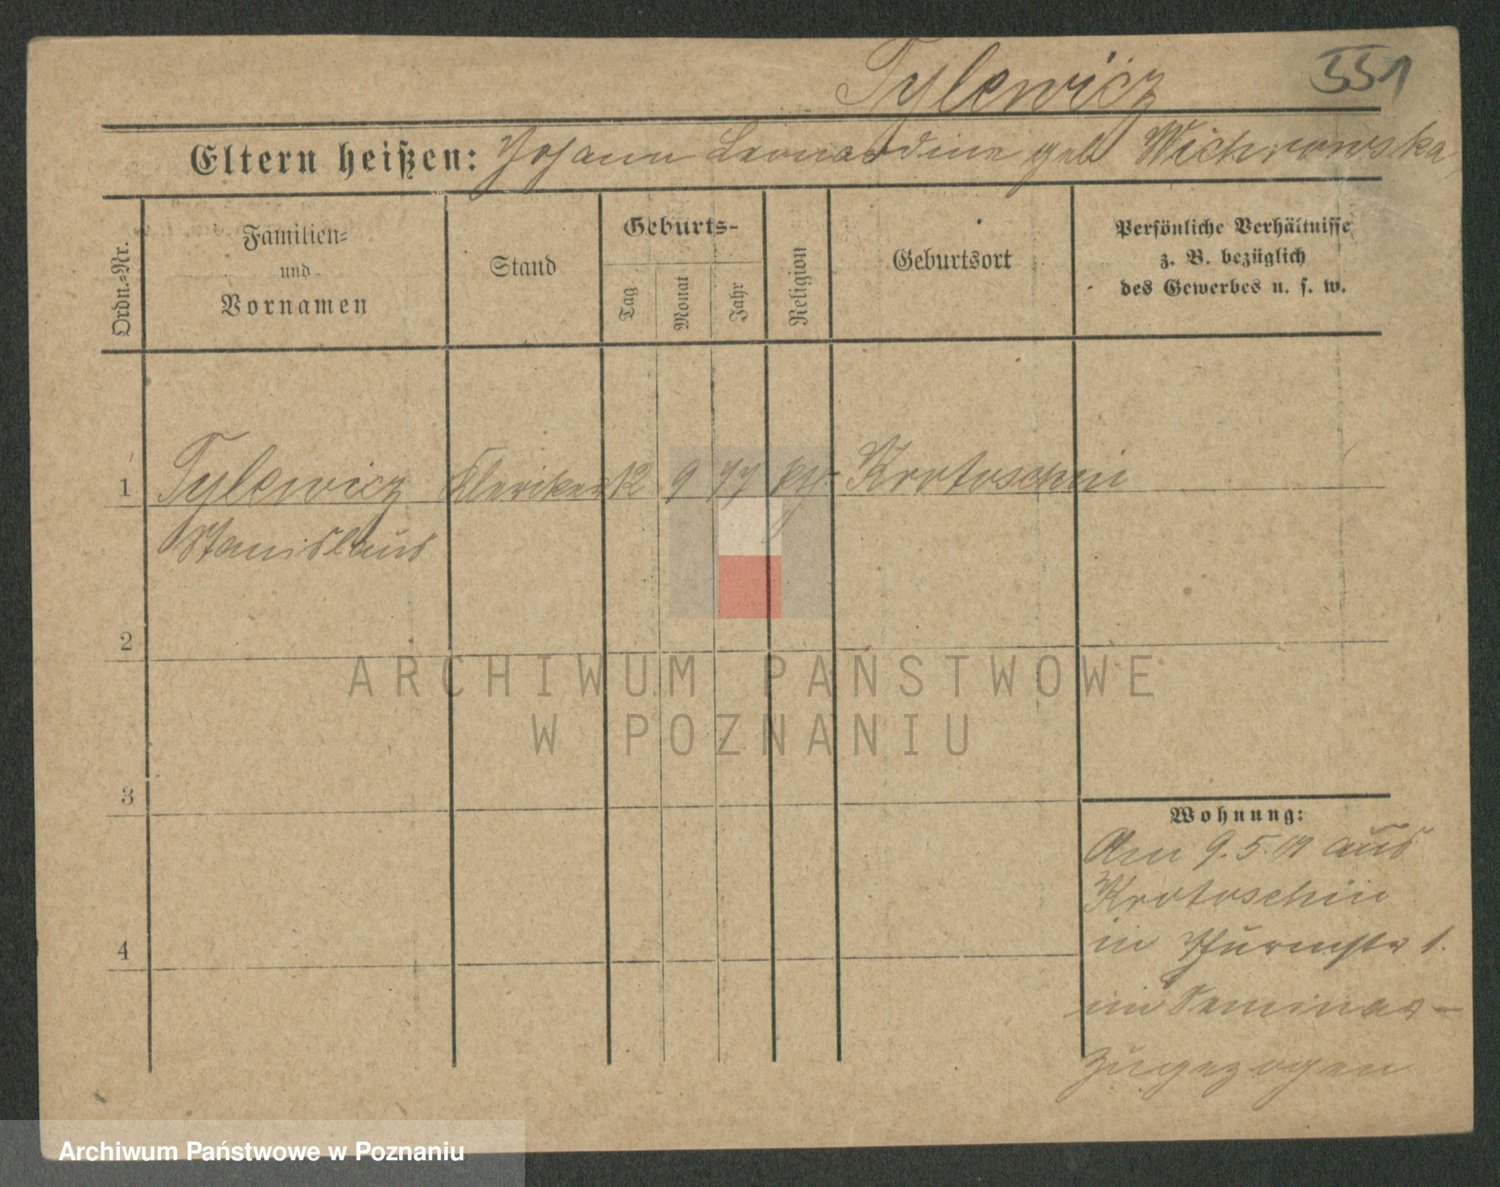 Tylewicz 551
Eltern heißen: Johann Leonardine geb Wichrowska
Ordn.-Nr.
Familien-
und
Vornamen
Stand
Geburts-
Tag
Monat
Jahr
Religion
Geburtsort
Persönliche Verhältnisse
z. B. bezüglich
des Gewerbes u. s. w.
1 Tylewicz Kleriker 12 9 77 Krotoschin
Stanislaus
2
ARCHIWUM PAŃSTWOWE
W POZNANIU
3
Wohnung:
Am 9.5. aus
Krotoschin
4
in Thurmstr 1.
im Seminar-
zugezogen
Archiwum Państwowe w Poznaniu